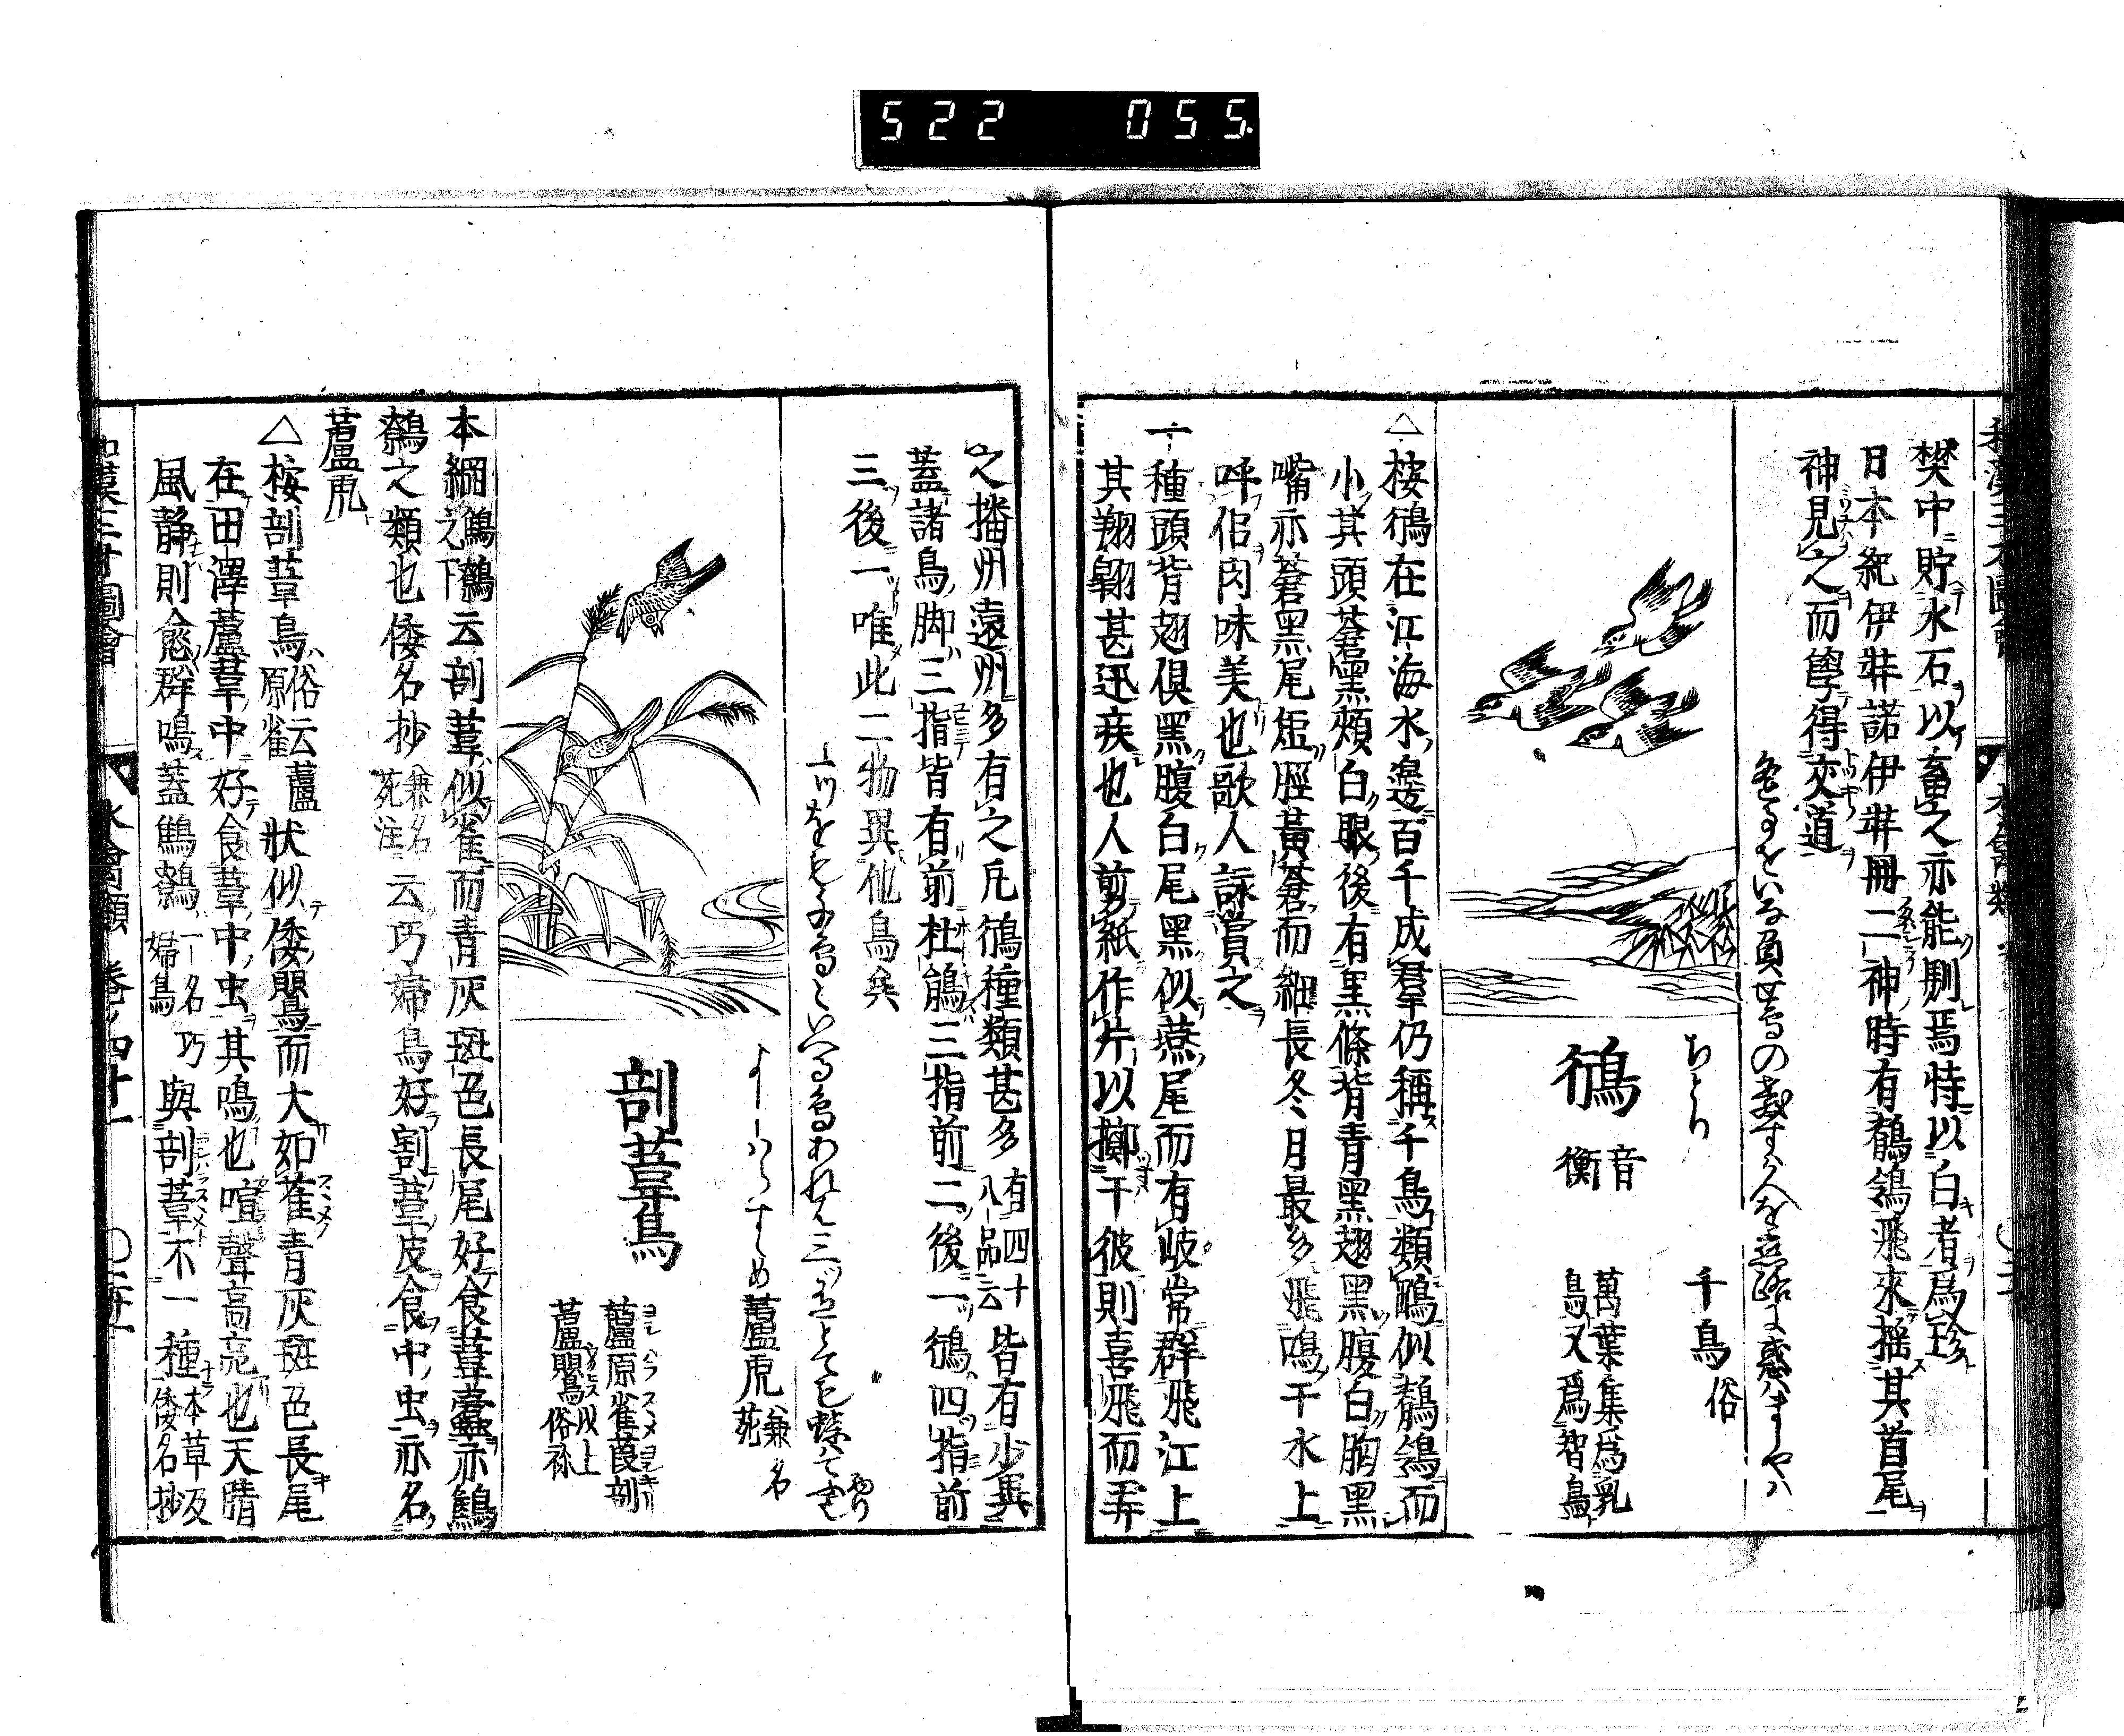 522 055
樊中貯水石以畜之亦能馴焉特以白者爲珍
日本紀伊弉諾伊弉冊二神時有鶺鴒飛來揺其首尾
神見之而學得交道
ちとり
千鳥俗
鴴
音衡
萬葉集爲乳
鳥又爲智鳥
△按鴴在江海水邊百千成羣仍稱千鳥類鷸似鶺鴒而
小其頭蒼黑頰白眼後有黑條背青黑翅黑腹白胸黑
嘴亦蒼黑尾短脛黃蒼而細長冬月最多飛鳴于水上
呼侶肉味美也歌人詠賞之
一種頭背翅俱黑腹白尾黑似燕尾而有岐常群飛江上
其翔翺甚迅疾也人剪紙作片以擲于彼則喜飛而弄
之播州遠州多有之凡鴴種類甚多有四十八品云皆有少異
蓋諸鳥脚三指皆有前杜鵑三指前二後一鴴四指前
三後一唯此二物異他鳥矣
よしはらすゝめ
蘆虎兼名苑
剖葦鳥
蘆原雀葭剖
蘆鸎以上俗稱
本綱鷦鷯之下云剖葦似雀而青灰斑色長尾好食葦蠹亦鷦
鷯之類也倭名抄兼名苑注云巧婦鳥好割葦皮食中虫亦名
蘆虎
△按剖葦鳥俗云蘆原雀狀似倭鸎而大如雀青灰斑色長尾
在田澤蘆葦中好食葦中虫其鳴也喧聲高亮也天晴
風靜則愈群鳴蓋鷦鷯一名巧婦鳥與剖葦不一種本草及倭名抄
和漢三才圖會
水禽類 卷ノ四十一